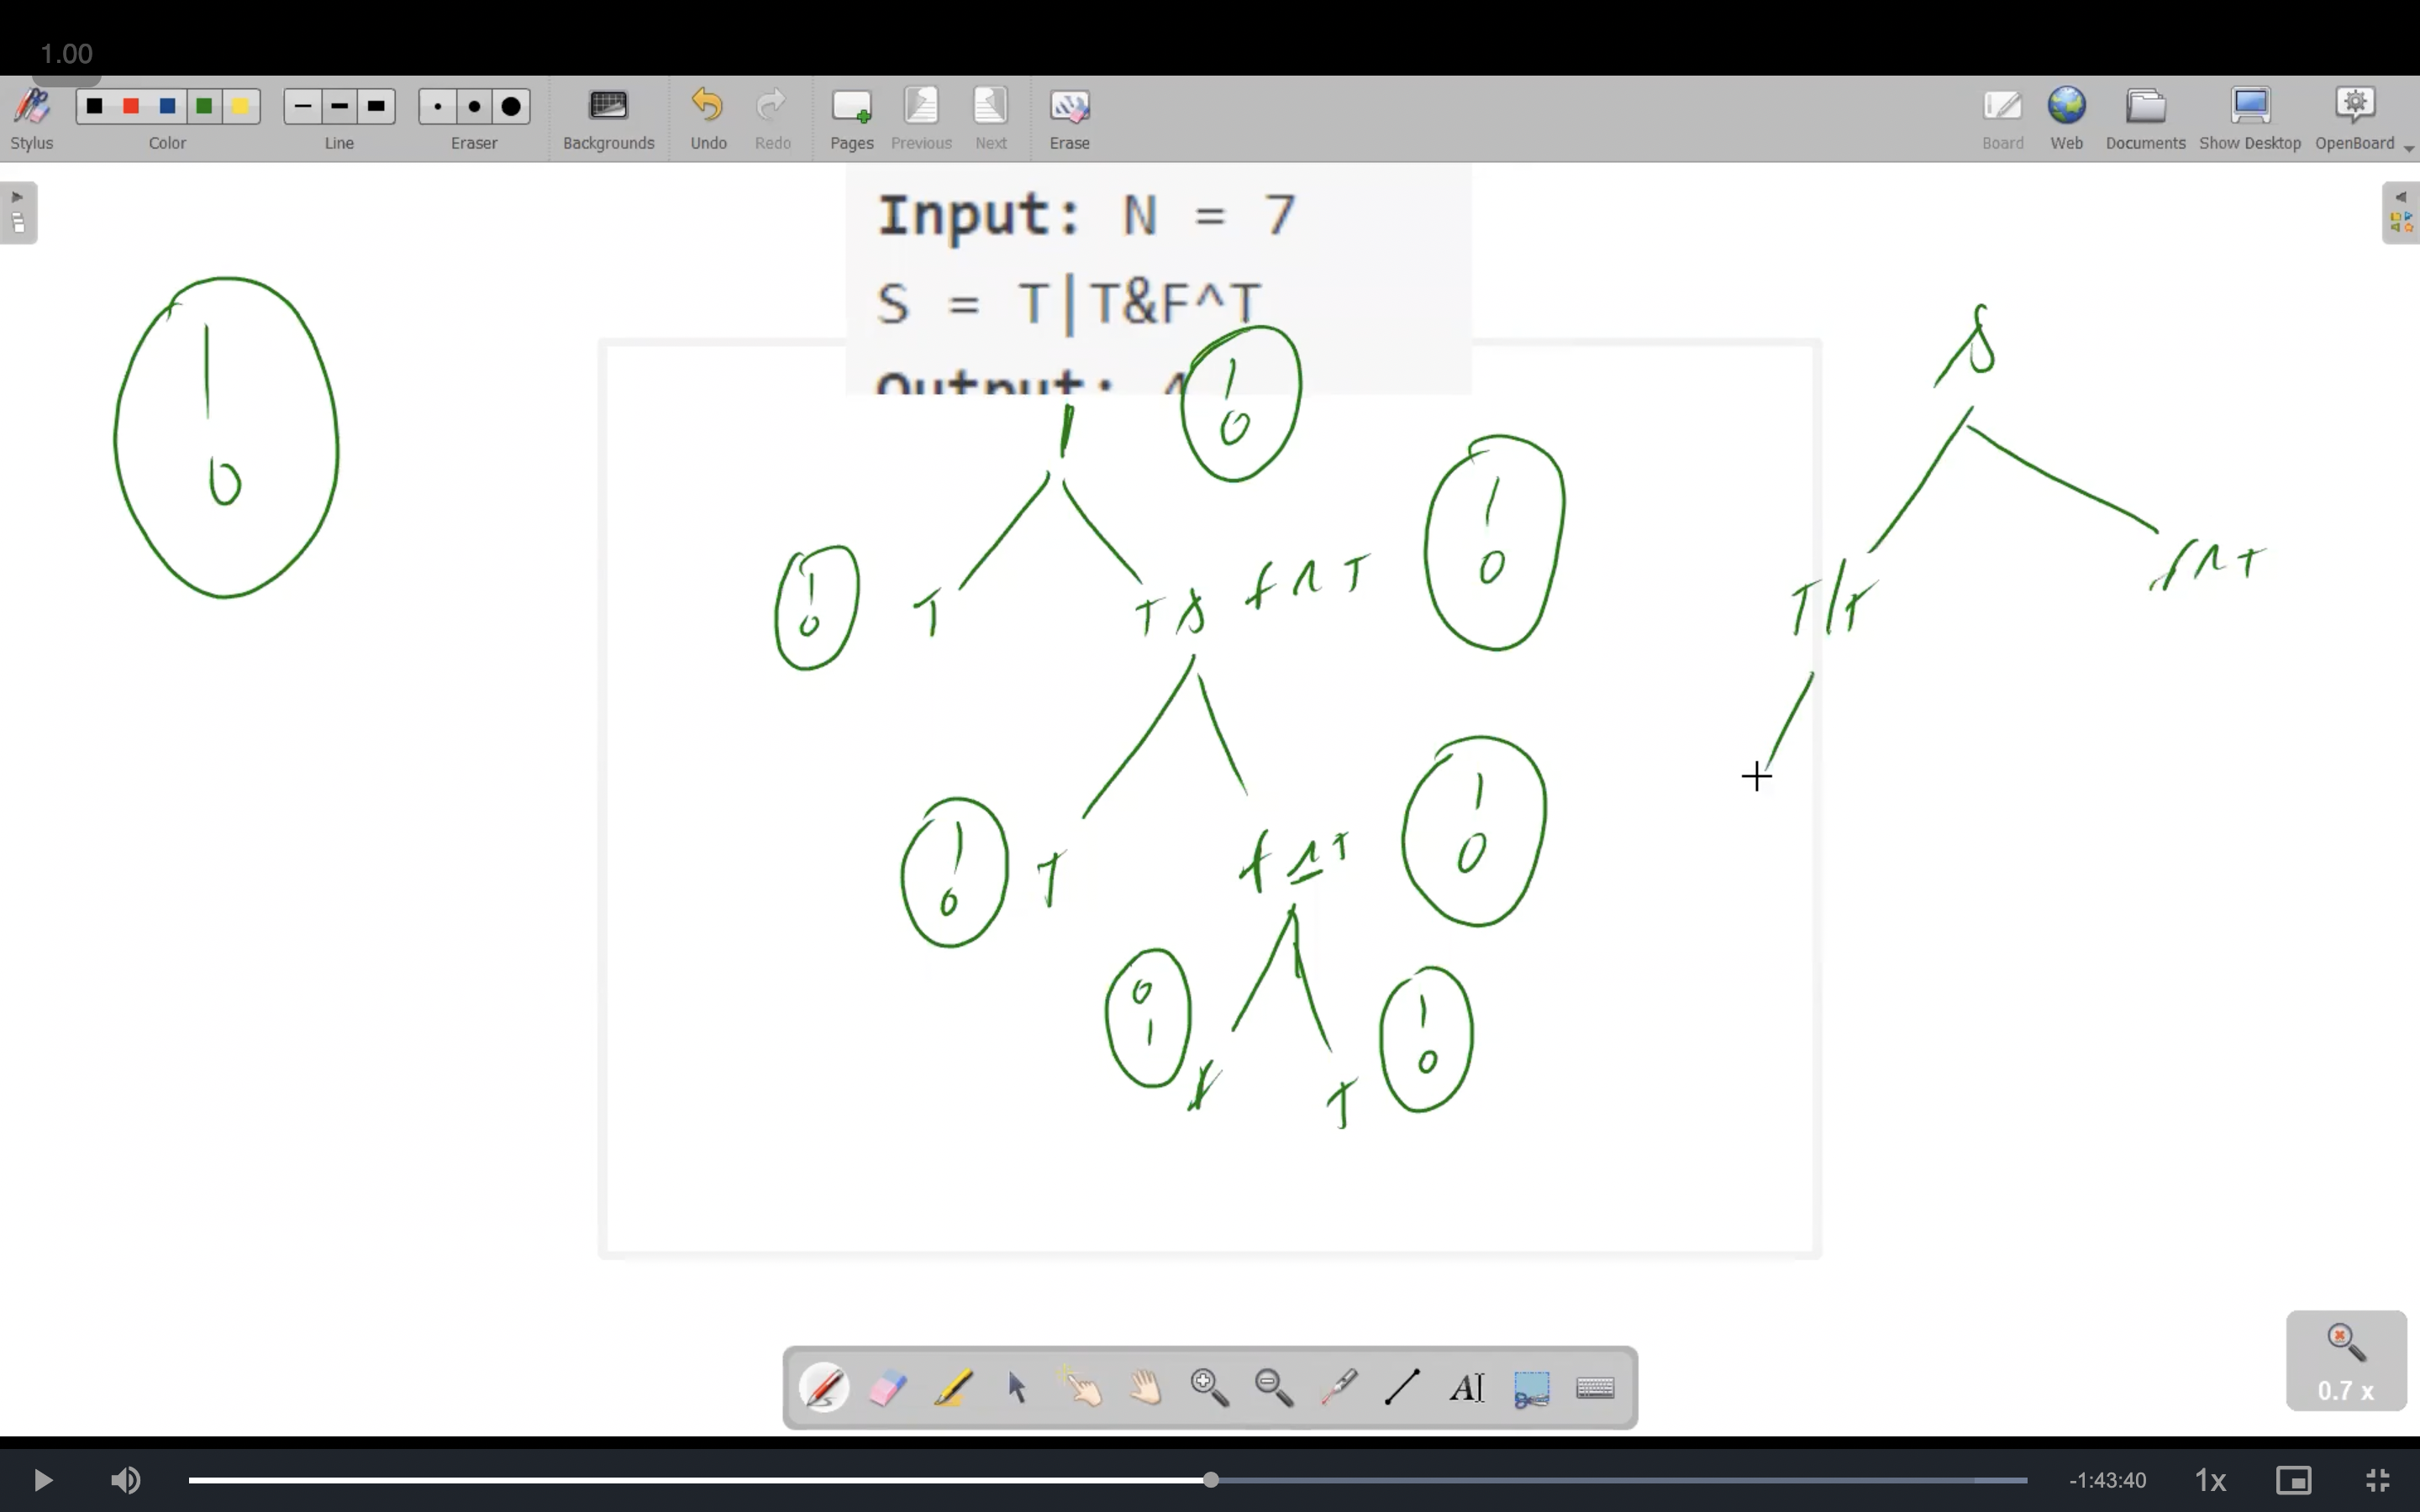 1.00
Stylus Color Line Eraser Backgrounds Undo Redo Pages Previous Next Erase Board Web Documents Show Desktop OpenBoard
Input: N = 7
S = T|T&F^T
Output: 4
1
0
1
0
|
&
1
0
1
0
T
T & F ^ T
1
0
T|T
F ^ T
1
0
T
F ^ T
1
0
0
1
F
T
1
0
AI
0.7 x
-1:43:40
1x